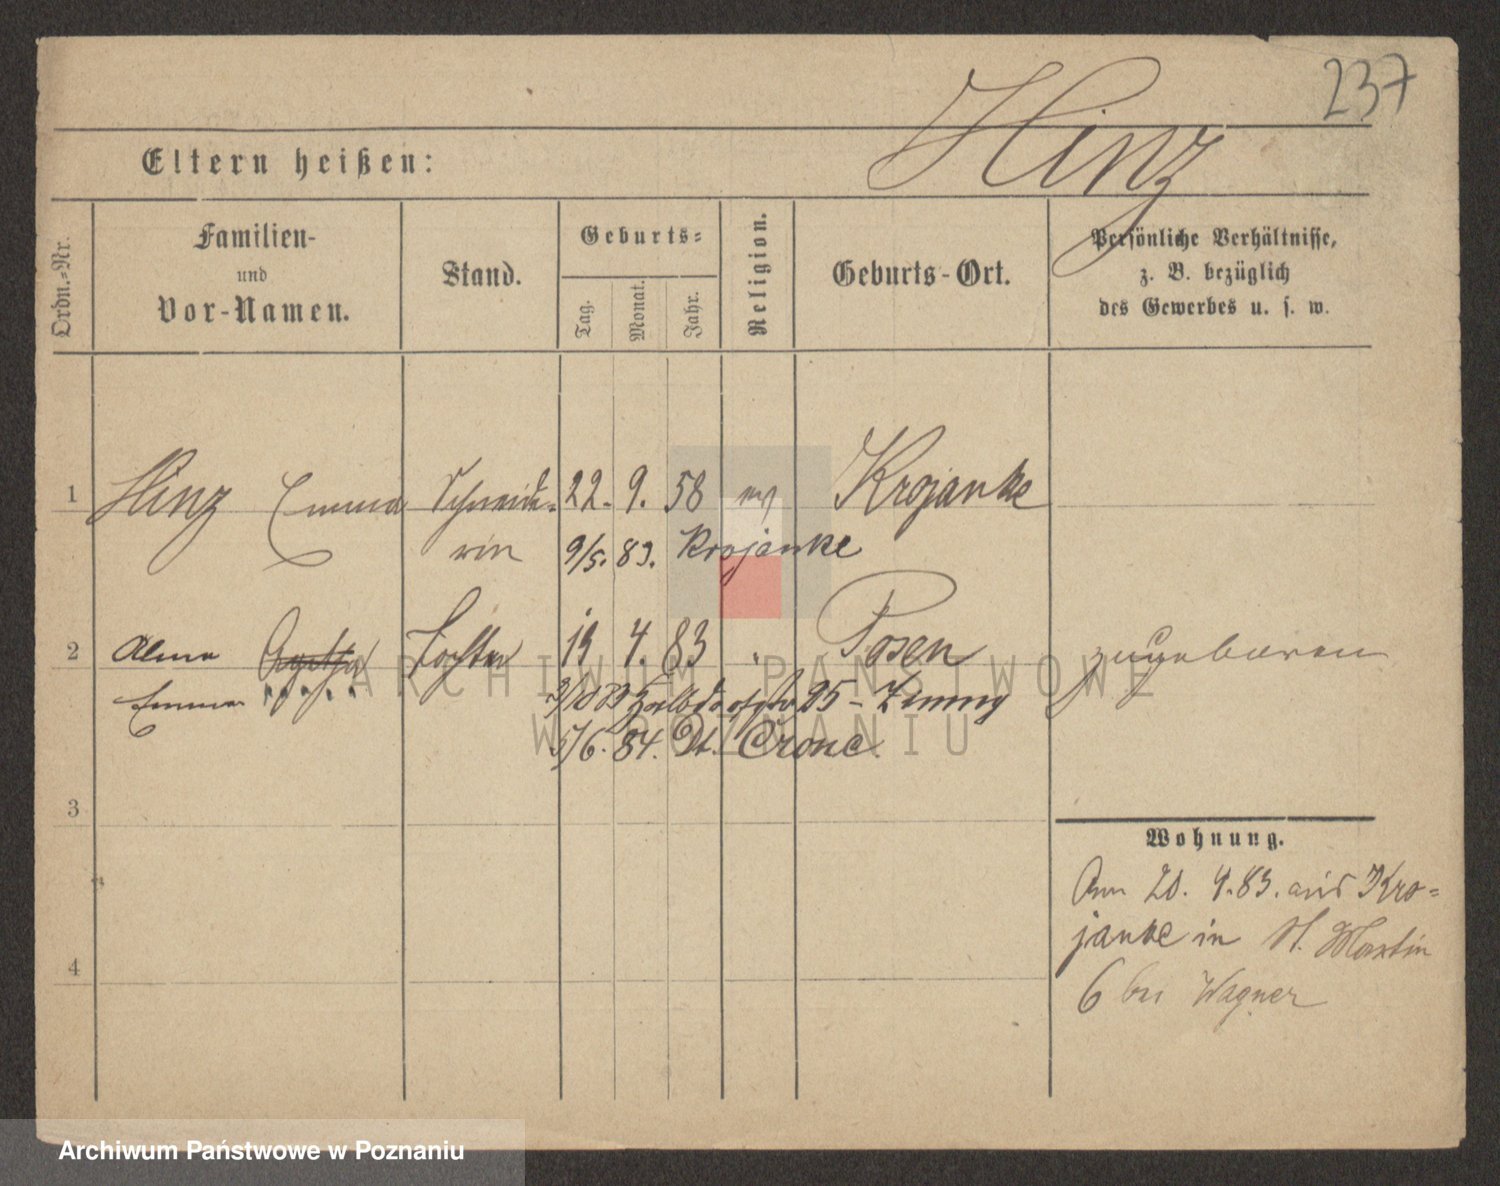 237
Hinz
Eltern heißen:
Ordn.-Nr.
Familien-
und
Vor-Namen.
Stand.
Geburts-
Tag.
Monat.
Jahr.
Religion.
Geburts-Ort.
Persönliche Verhältnisse,
z. B. bezüglich
des Gewerbes u. s. w.
1 Hinz Emma Schneide- 22. 9. 58 ev Krojanke
rin 9/5. 83. Krojanke
2 Alma Agatha Tochter 19 4. 83 Posen zugeboren
Emma 85
5/6. 84. Dt. Crone.
3
4
Wohnung.
Am 20. 4. 83. aus Kro-
janke in St. Martin
6 bei Wagner
ARCHIWUM PAŃSTWOWE
W POZNANIU
Archiwum Państwowe w Poznaniu